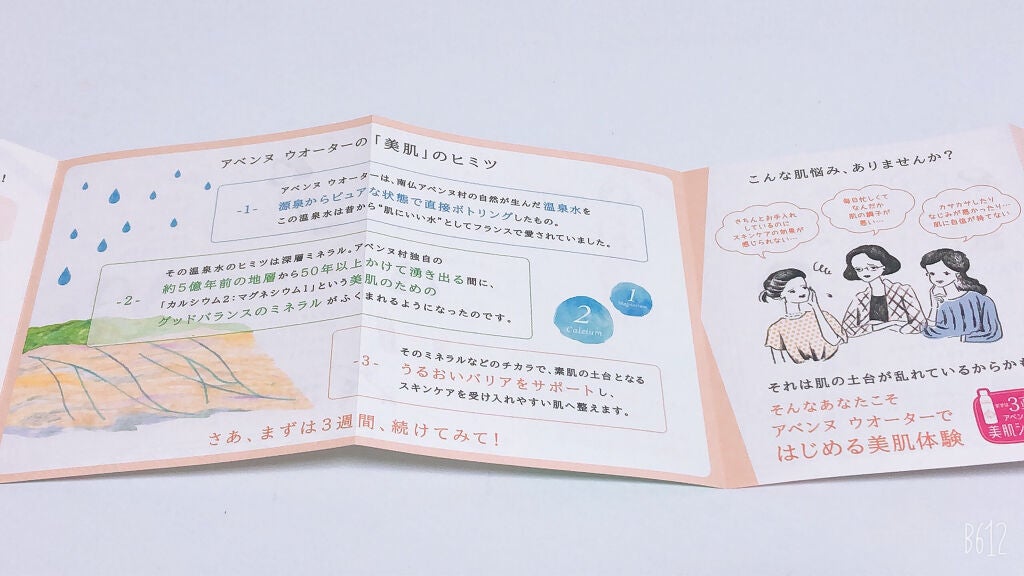 !
アベンヌ ウオーターの「美肌」のヒミツ
-1-
アベンヌ ウオーターは、南仏アベンヌ村の自然が生んだ温泉水を
源泉からピュアな状態で直接ボトリングしたもの。
この温泉水は昔から“肌にいい水”としてフランスで愛されていました。
-2-
その温泉水のヒミツは深層ミネラル。アベンヌ村独自の
約5億年前の地層から50年以上かけて湧き出る間に、
「カルシウム2:マグネシウム1」という美肌のための
グッドバランスのミネラルがふくまれるようになったのです。
2
Calcium
1
Magnesium
-3-
そのミネラルなどのチカラで、素肌の土台となる
うるおいバリアをサポートし、
スキンケアを受け入れやすい肌へ整えます。
さあ、まずは3週間、続けてみて!
こんな肌悩み、ありませんか?
きちんとお手入れ
しているのに
スキンケアの効果が
感じられない…
毎日忙しくて
なんだか
肌の調子が
悪い…
カサカサしたり
なじみが悪かったり…
肌に自信が持てない
それは肌の土台が乱れているからかも
そんなあなたこそ
アベンヌ ウオーターで
はじめる美肌体験
3週
アベン
美肌シ
B612